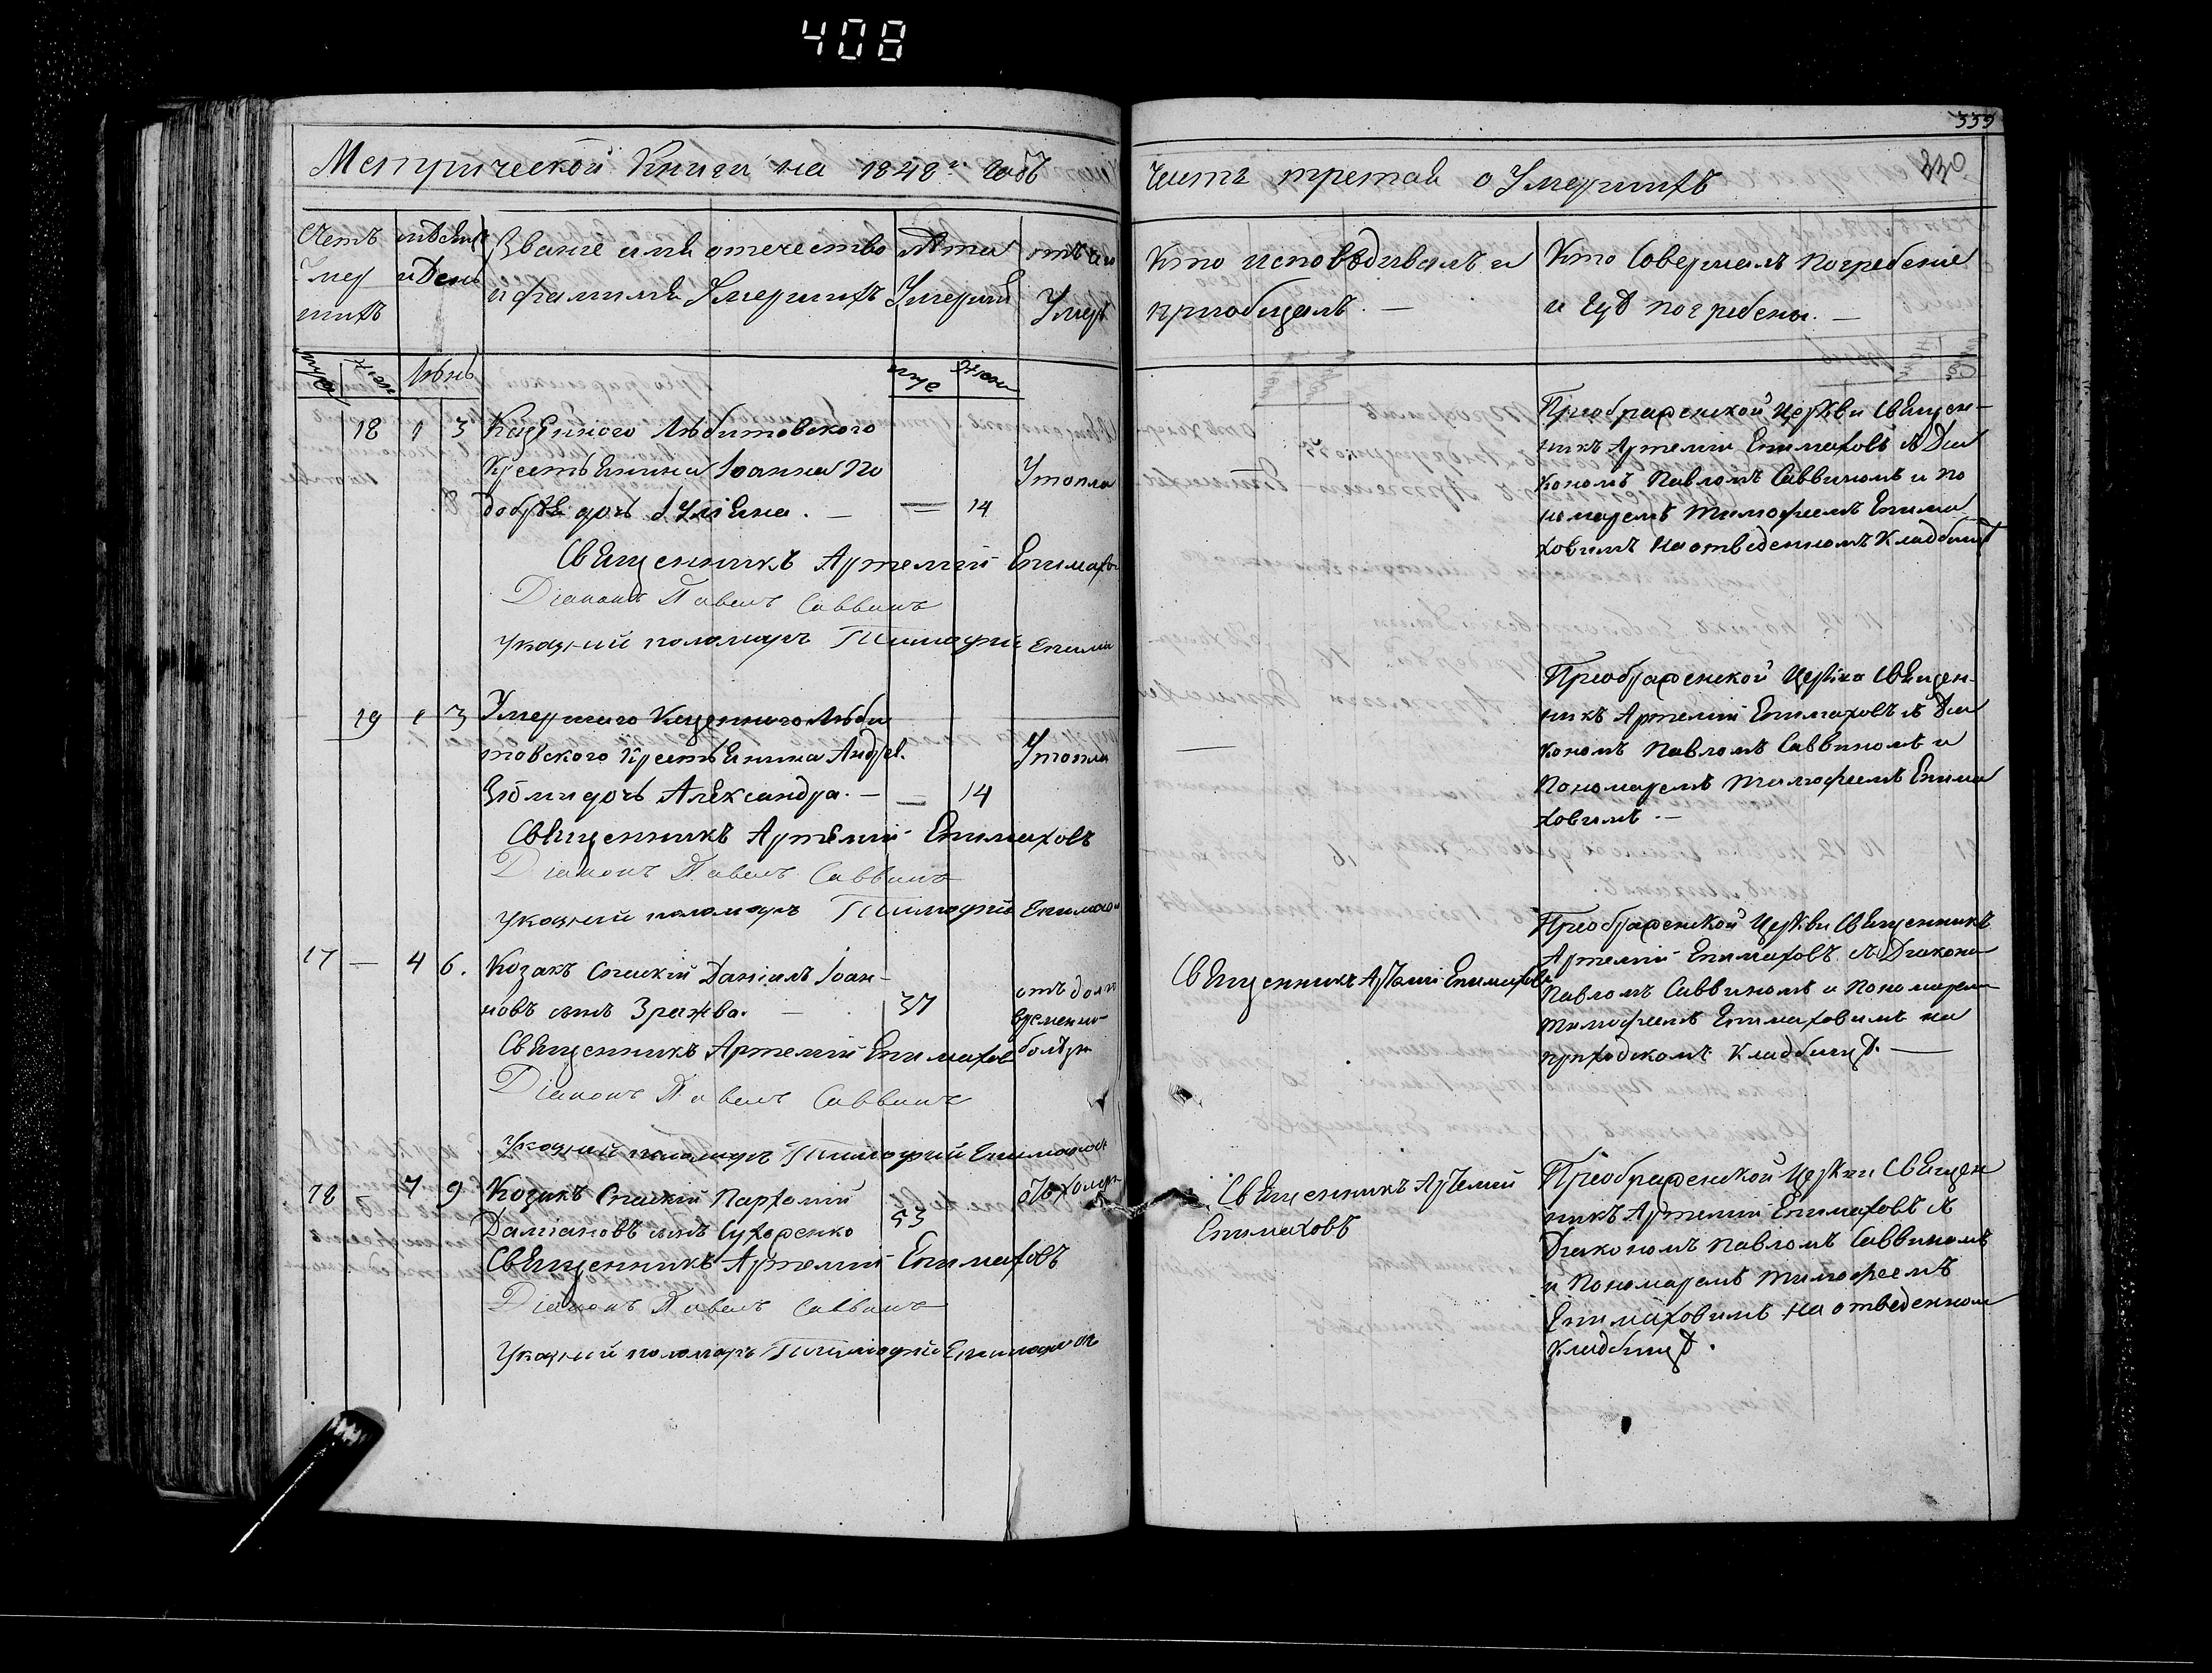 408
Метрической Книги на 1848й годъ
Счетъ Умер шихъ
мѣсяцъ и День
Званіе имя отечество и фамилія Умершихъ
Лѣта Умерш
отъ чего Умеръ
муж
жен
Іюнь
муж
женск
18 1 3 Казенного Любитовского
крестьянина Іоанна По
добрѣя дочь Іуліяна. — 14 Утопла
Священникъ Артемій Епимахов
Діаконъ Павелъ Саввинъ
Указній паламаръ Тимофій Епима
19 1 3 Умершаго Казенного Люби
товского крестьянина Андрея
дочь Александра. — 14 Утопла
Священникъ Артемій Епимаховъ
Діаконъ Павелъ Саввинъ
Указній паламаръ Тимофій Епимахов
17 — 4 6. Козакъ Спаскій Даніилъ Іоан-
новъ сынъ Зражва. — 37 отъ долго
временно
болѣзн
Священникъ Артемій Епимахов
Діаконъ Павелъ Саввинъ
Указній паламаръ Тимофій Епимахов
18 7 9 Козакъ Спаскій Парфеній
Даміановъ сынъ Сухоженко 53 отъ холеры
Священникъ Артемій Епимаховъ
Діаконъ Павелъ Саввинъ
Указній паламаръ Тимофій Епимахов
339
330
Часть третая о Умершихъ
Кто исповѣдивалъ и
пріобщалъ. —
Кто Совершалъ погребеніе
и гдѣ погребены. —
Преображенской Церкви Священ-
никъ Артемій Епимаховъ съ Діа
кономъ Павломъ Саввиномъ и по
номаремъ Тимофеемъ Епима
ховимъ на отведенномъ Кладбищѣ
Преображенской Церкви Священ-
никъ Артемій Епимаховъ съ Діа
кономъ Павломъ Саввиномъ и
Пономаремъ Тимофеемъ Епима
ховимъ. —
Священникъ Артемій Епимаховъ
Преображенской Церкви Священникъ
Артемій Епимаховъ съ Діакона
Павломъ Саввиномъ и пономарем
Тимофеемъ Епимаховимъ на
приходскомъ Кладбищѣ. —
Священникъ Артемій
Епимаховъ
Преображенской Церкви Священ
никъ Артемій Епимаховъ съ
Діакономъ Павломъ Саввиномъ
и Пономаремъ Тимофеемъ
Епимаховимъ на отведенном
Кладбищѣ.